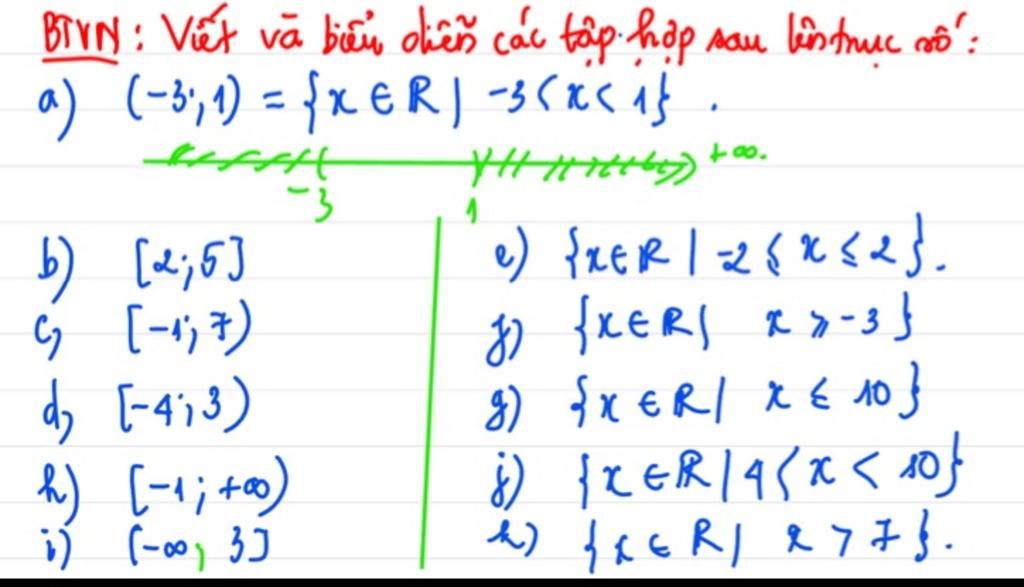 BTVN: Viết và biểu diễn các tập hợp sau lên trục số:
a) (-3; 1) = {x ∈ R | -3 < x < 1}.
+∞.
-3 1
b) [2; 5]
c) [-1; 7)
d) [-4; 3)
h) [-1; +∞)
i) (-∞; 3]
e) {x ∈ R | -2 ≤ x ≤ 2}.
f) {x ∈ R | x ≥ -3}
g) {x ∈ R | x ≤ 10}
j) {x ∈ R | 4 < x < 10}
k) {x ∈ R | x > 7}.